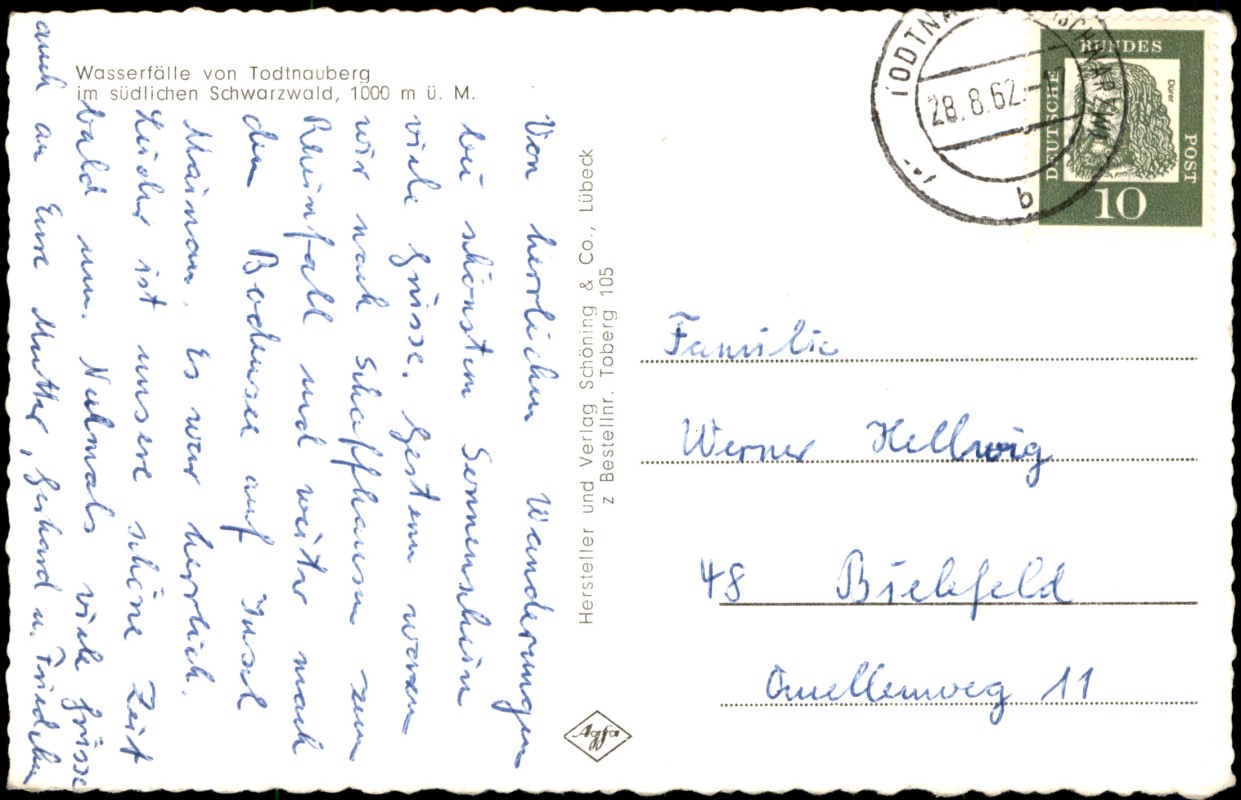 Wasserfälle von Todtnauberg
im südlichen Schwarzwald, 1000 m ü. M.
Von herrlichen Wanderungen
bei schönstem Sonnenschein
viele Grüsse. Gestern waren
wir nach Schaffhausen zum
Rheinfall und weiter nach
dem Bodensee auf Insel
Mainau. Es war herrlich.
Leider ist unsere schöne Zeit
bald um. Nochmals viele Grüsse
auch an Eure Mutter, Gerhard u. Friedchen
Hersteller und Verlag Schöning & Co., Lübeck
z Bestellnr. Toberg 105
Agfa
28.8.62
b
DEUTSCHE
BUNDES
POST
Dürer
10
Familie
Werner Hellwig
48 Bielefeld
Quellenweg 11